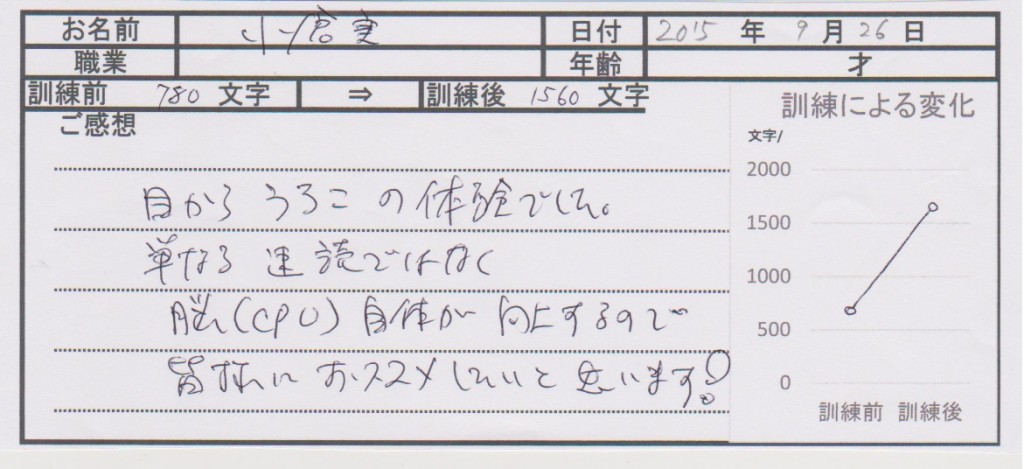 お名前 小倉実 日付 2015 年 9 月 26 日
職業 年齢 才
訓練前 780 文字 ⇒ 訓練後 1560 文字
ご感想
目からうろこの体験でした。
単なる速読ではなく
脳(CPU)自体が向上するので
皆様におススメしたいと思います!
訓練による変化
文字/
2000
1500
1000
500
0
訓練前 訓練後